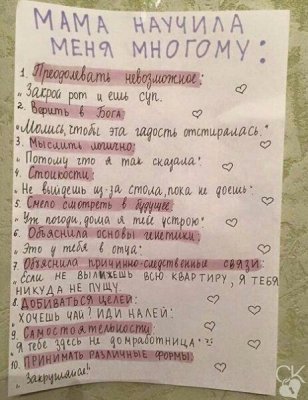 МАМА НАУЧИЛА
МЕНЯ МНОГОМУ:
1. Преодолевать невозможное:
„Закрой рот и ешь суп.
2. Верить в Бога
„Молись, чтобы эта гадость отстиралась."
3. Мыслить логично:
„Потому что я так сказала"
4. Стойкости:
„Не выйдешь из-за стола, пока не доешь.
5. Смело смотреть в будущее:
„Уж погоди, дома я тебе устрою"
6. Объяснила основы генетики:
„Это у тебя в отца:
7. Объяснила причинно-следственные связи:
„Если не вылижешь всю квартиру, я тебя
никуда не пущу.
8. Добиваться целей:
Хочешь чай? Иди налей:
9. Самостоятельности:
„Я тебе здесь не домработница"
10. Принимать различные формы:
„Закругляйся!"
СК